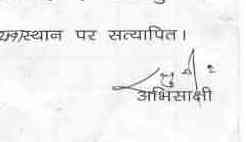 स्थान पर सत्यापित।
अभिसाक्षी